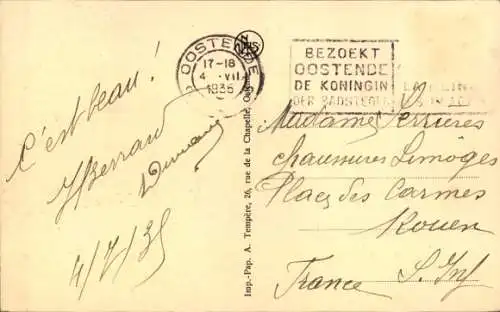 C'est beau !
4/7/35
Imp.-Pap. A. Tempère, 26, rue de la Chapelle,
OOSTENDE
17-18
4 VII
1935
BEZOEKT
OOSTENDE
DE KONINGIN
DER BADSTEDEN
Madame
Chaussures Limoges
Place des Carmes
Rouen
France S. Inf